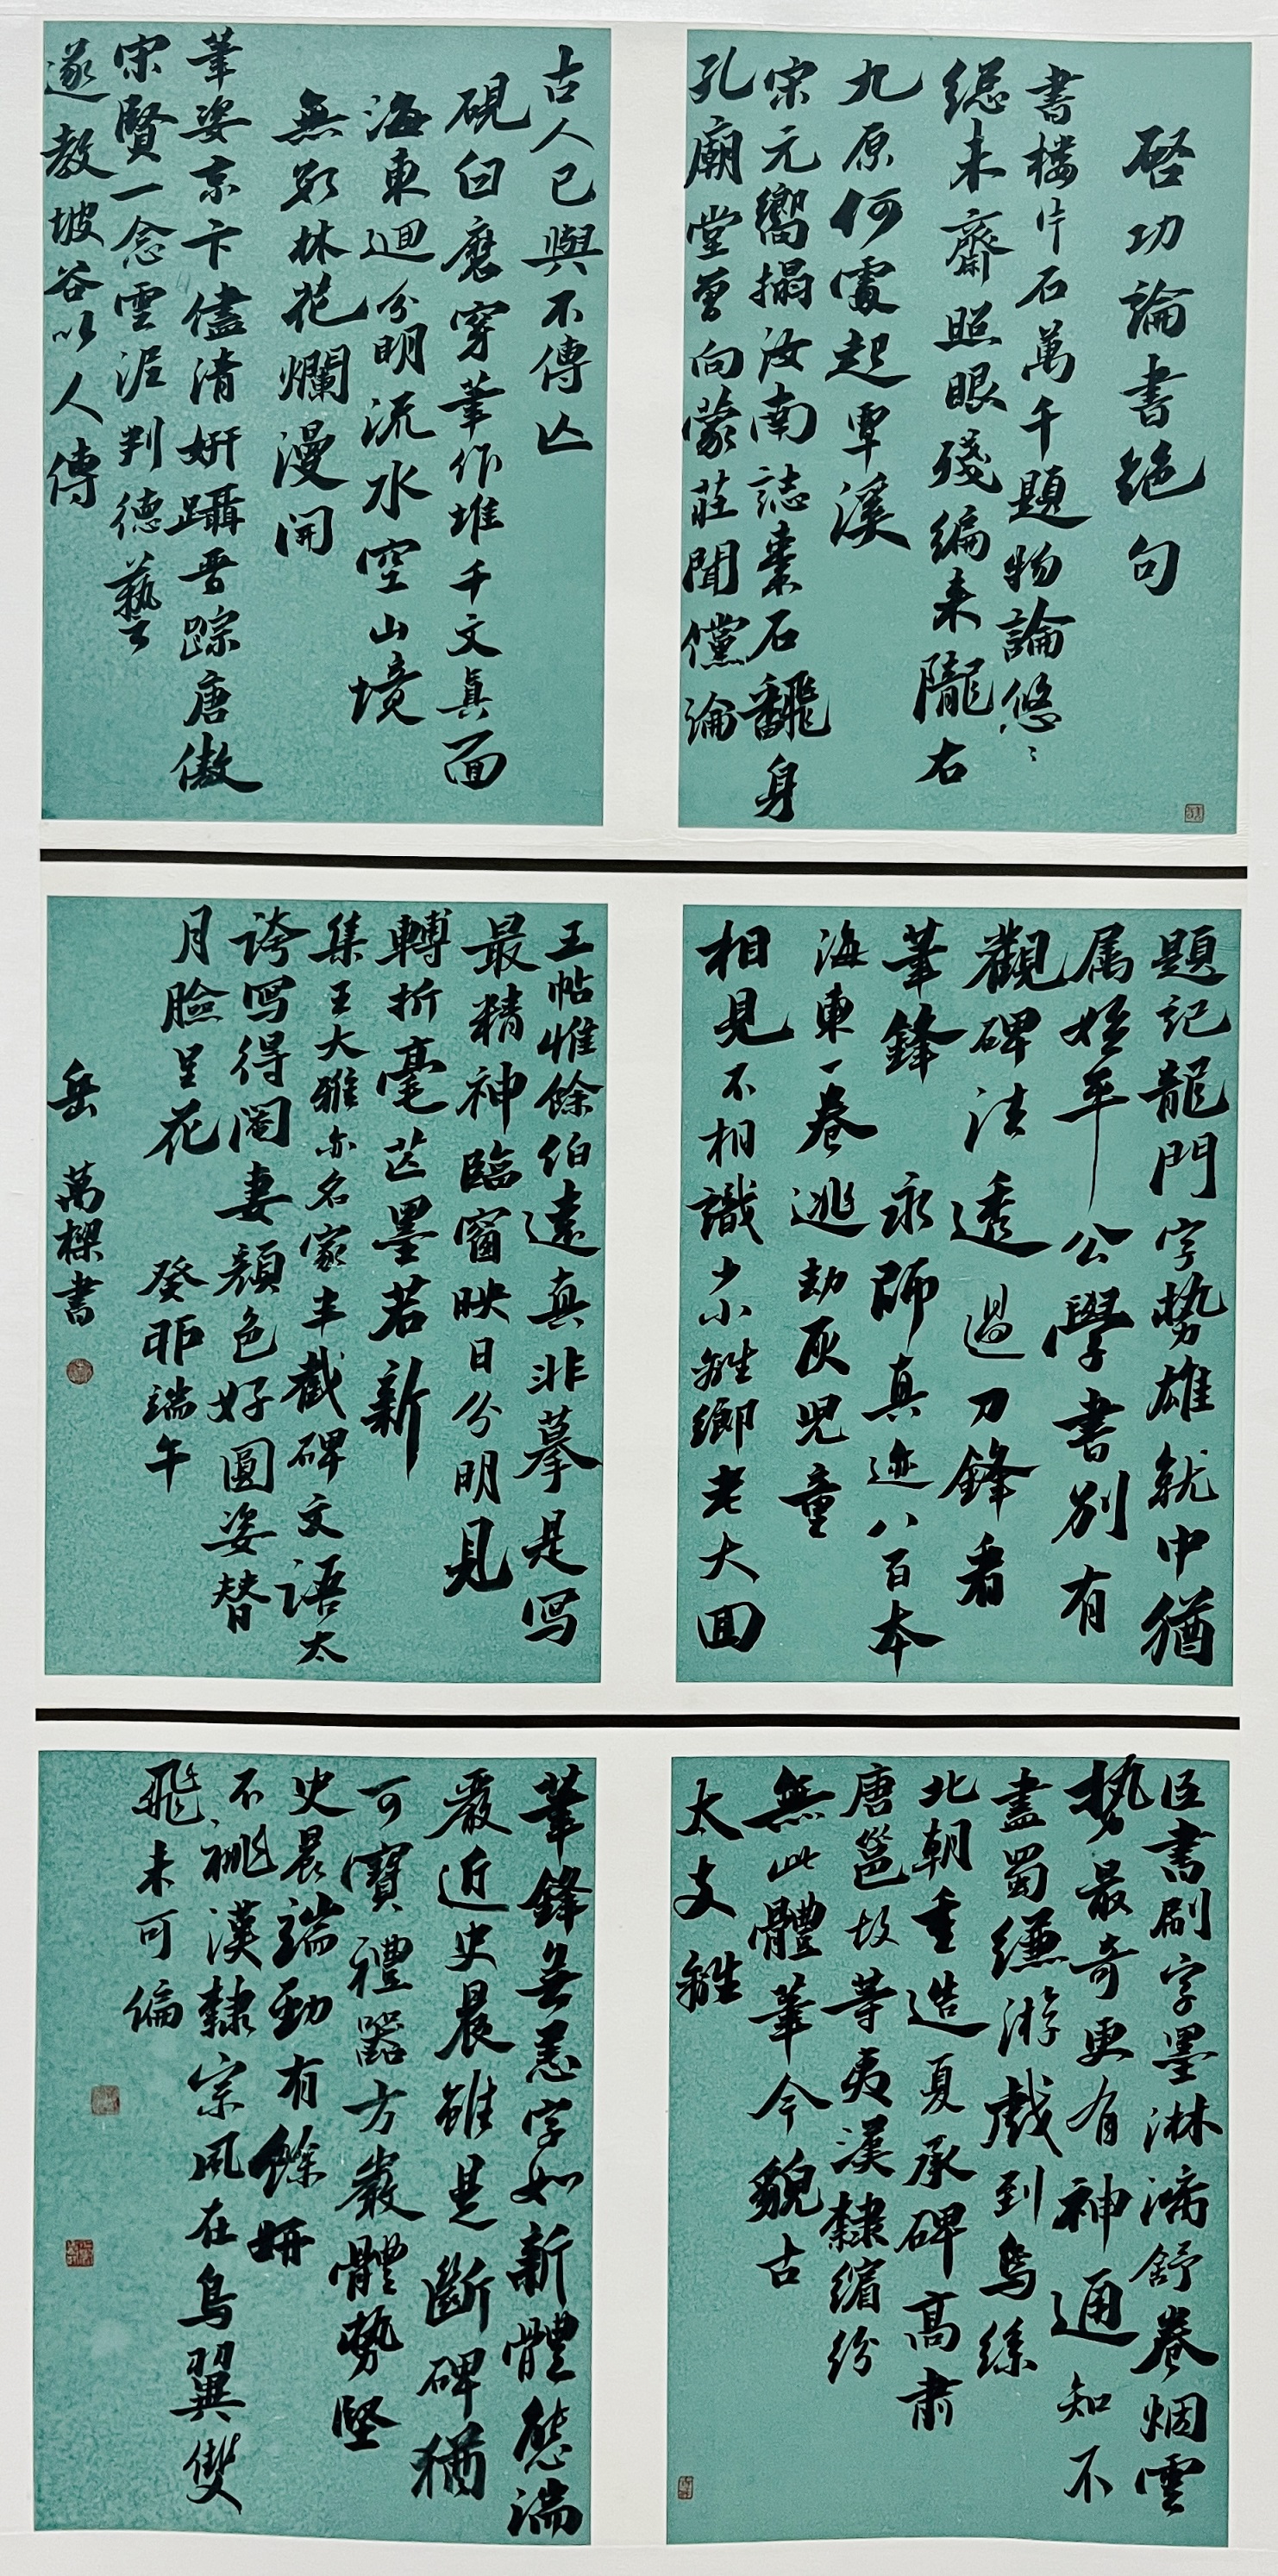 啓功論書絕句
書楼片石萬千題物論悠〻
總未齊照眼殘編来隴右
九原何處起覃溪
宋元嚮搨汝南誌棗石翻身
孔廟堂曾向蒙莊聞儻論
古人已與不傳亾
硯臼磨穿筆作堆千文真面
海東迴分明流水空山境
無數林花爛漫開
筆姿京卞儘清妍躡晋踪唐傲
宋賢一念雲泥判德藝
遂教坡谷以人傳
題記龍門字勢雄就中猶
属始平公學書別有
觀碑法透過刀鋒看
筆鋒 永師真迹八百本
海東一卷逃劫灰兒童
相見不相識少小離鄉老大回
王帖惟餘伯遠真非摹是寫
最精神臨窗映日分明見
轉折毫芒墨若新
集王大雅亦名家半截碑文語太
誇寫得閻妻顏色好圓姿替
月臉呈花 癸卯端午
岳萬樑書
臣書刷字墨淋漓舒卷烟雲
勢最奇更有神通知不
盡蜀縑游戲到烏絲
北朝重造夏承碑高肅
唐邕故等夷漢隸繽紛
無此體筆今貌古
太支離
筆鋒無恙字如新體態端
嚴近史晨雖是斷碑猶
可寶禮器方嚴體勢堅
史晨端勁有餘妍
不祧漢隸宗風在鳥翼雙
飛未可偏